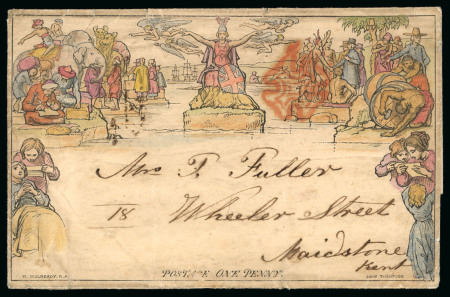 Mrs T. Fuller
18 Wheeler Street
Maidstone
Kent
POSTAGE ONE PENNY.
W. MULREADY, R.A.
JOHN THOMPSON